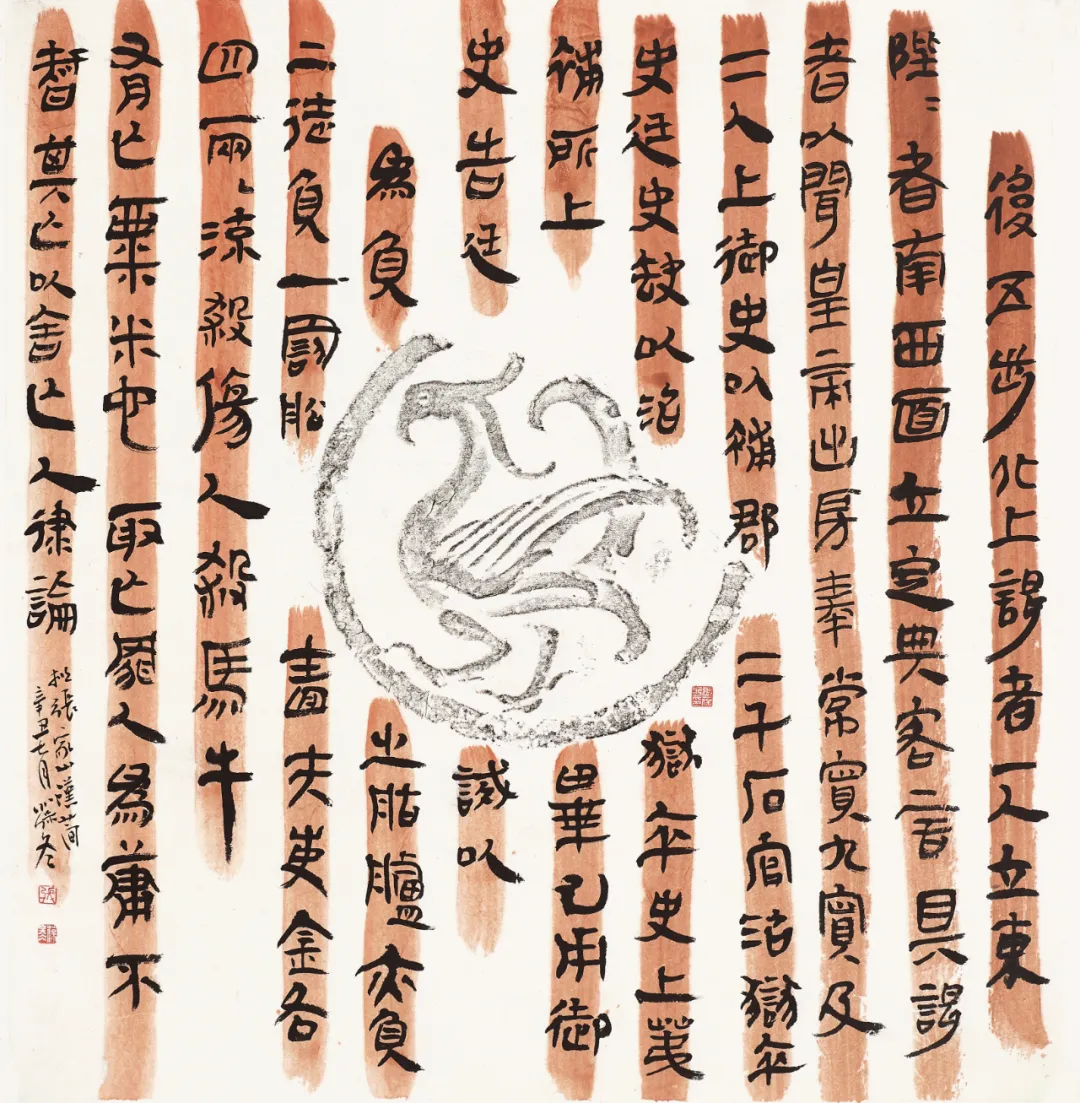 後五步北上謁者一人立東
陛〻者南西面立定典客言具謁
者以聞皇帝出房奉常賓九賓及
一人上御史以補郡
二千石官治獄卒
史廷史缺以治
獄卒史上
補所上
畢已用御
史告廷
誠以
為負
之脂臚亦負
二徒負一罰
嗇夫吏金各
四兩〻涼殺傷人殺馬牛
有亡粟米也取亡罷人為庸不
智其亡以舍亡人律論
拟張家山漢简
辛丑七月